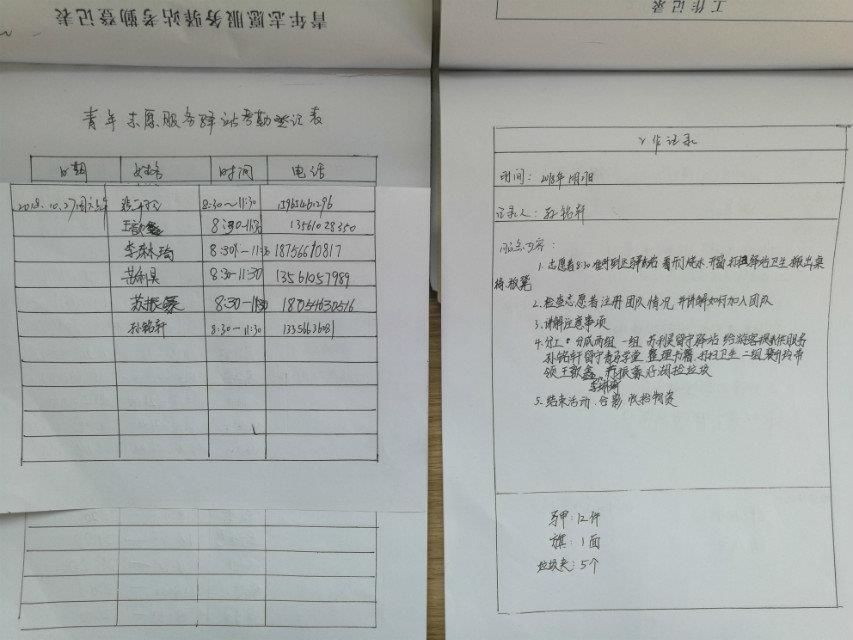 青年志愿服务驿站考勤登记表
工作记录
青年志愿服务驿站考勤登记表
日期 姓名 时间 电话
2018.10.27 8:30~11:30
王歆鑫 8:30-11:30 13561028350
8:30-11:30 18756610817
8:30-11:30 13561057989
苏振豪 8:30-11:30 18054630516
孙铭轩 8:30-11:30
工作记录
时间：
记录人：孙铭轩
1. 志愿者8:30准时到达驿站 看门 烧水 开窗 打扫驿站卫生 搬出桌
椅 板凳
2. 检查志愿者注册团队情况 并讲解如何加入团队
3. 讲解注意事项
4. 分工：分成两组 一组 留守驿站 给游客提供服务
孙铭轩留守 学堂 整理书籍 打扫卫生 二组
领王歆鑫 苏振豪 捡垃圾
5. 结束活动、合影 收拾物资
马甲：12件
旗：1面
垃圾夹：5个